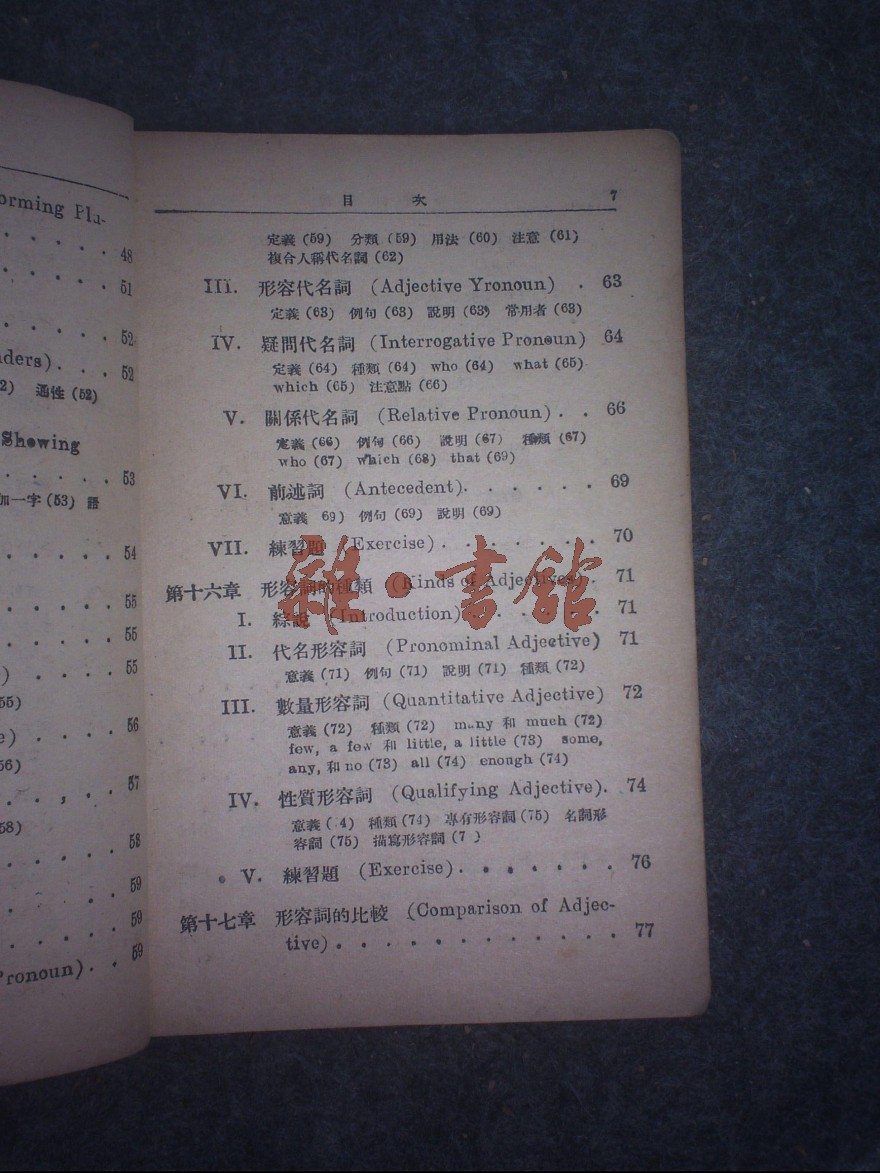 orming Plu-
48
51
52
nders). . . 52
2) 通性 (52)
Showing
53
加一字 (53) 語
54
55
55
) . . . . 55
55)
e) . . . . 56
56)
57
58)
58
59
59
Pronoun). . 59
目 次 7
定義 (59) 分類 (59) 用法 (60) 注意 (61)
複合人稱代名詞 (62)
III. 形容代名詞 (Adjective Yronoun) . 63
定義 (63) 例句 (63) 說明 (63) 常用者 (63)
IV. 疑問代名詞 (Interrogative Pronoun) 64
定義 (64) 種類 (64) who (64) what (65)
which (65) 注意點 (66)
V. 關係代名詞 (Relative Pronoun) . . 66
定義 (66) 例句 (66) 說明 (67) 種類 (67)
who (67) which (68) that (69)
VI. 前述詞 (Antecedent). . . . . . 69
意義 69) 例句 (69) 說明 (69)
VII. 練習題 (Exercise) . . . . . . . 70
第十六章 形容詞的種類 (Kinds of Adjectives) . 71
I. 綜說 (Introduction) . . . . . . 71
II. 代名形容詞 (Pronominal Adjective) 71
意義 (71) 例句 (71) 說明 (71) 種類 (72)
III. 數量形容詞 (Quantitative Adjective) 72
意義 (72) 種類 (72) many 和 much (72)
few, a few 和 little, a little (73) some,
any, 和 no (73) all (74) enough (74)
IV. 性質形容詞 (Qualifying Adjective). 74
意義 ( 4) 種類 (74) 專有形容詞 (75) 名詞形
容詞 (75) 描寫形容詞 (7 )
V. 練習題 (Exercise). . . . . . . 76
第十七章 形容詞的比較 (Comparison of Adjec-
tive) . . . . . . . . . . . . 77
雜·書館